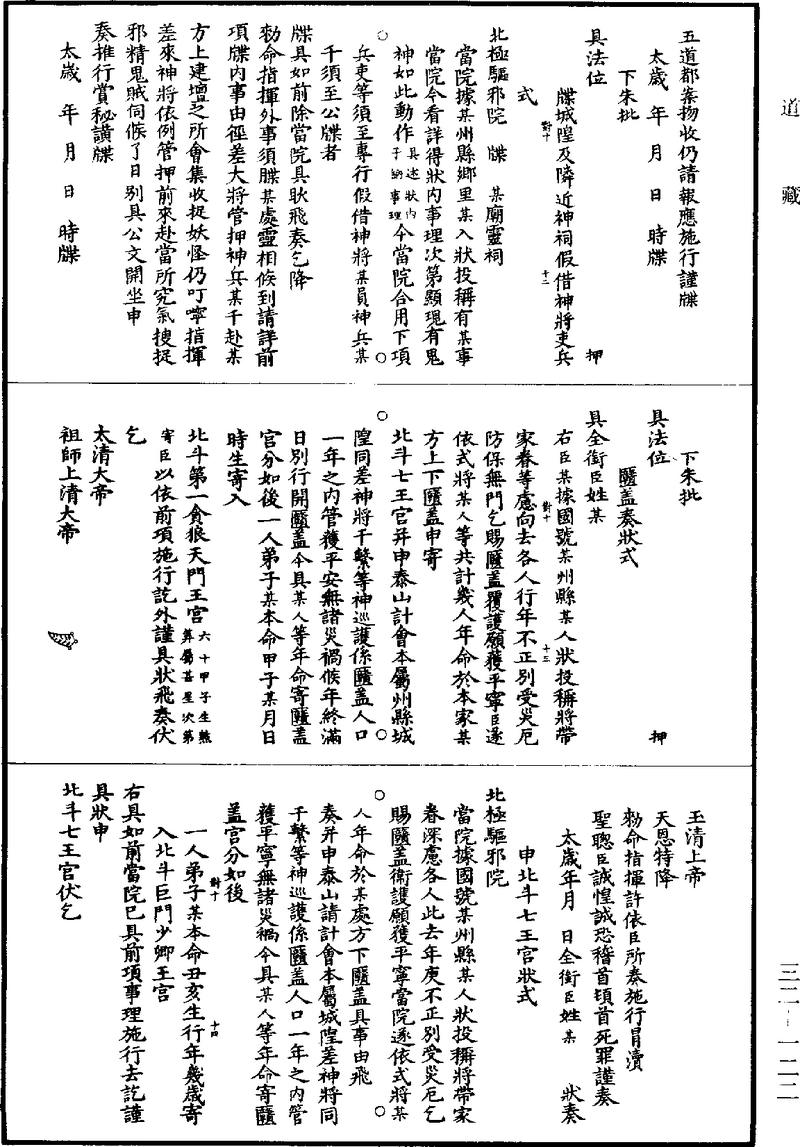 道藏
五道都案物收仍請報應施行謹牒
太歲　年　月　日　時牒
下朱批
具法位　押
牒城隍及隣近神祠假借神將吏兵
式
對十　十二
北極驅邪院　牒　某廟靈祠
當院據某州縣鄉里某入狀投稱有某事
當院今看詳得狀內事理次第顯現有鬼
神如此動作具述狀內子細事理今當院合用下項
兵吏等須至專行假借神將某員神兵某
千須至公牒者
牒具如前除當院具狀飛奏乞降
勑命指揮外事須牒某處靈相候到請詳前
項牒內事由徑差大將管押神兵某千赴某
方上建壇之所會集收捉妖怪仍叮嚀指揮
差來神將依例管押前來赴當所究氣搜捉
邪精鬼賊伺候了日別具公文開坐申
奏推行賞秘謨牒
太歲　年　月　日　時牒
下朱批
具法位　押
匾蓋奏狀式
具全銜臣姓某
右臣某據國號某州縣某人狀投稱將帶
對十　十三
家眷等慮向去各人行年不正別受災厄
防保無門乞賜匾蓋覆護願獲平寧臣遂
依式將某人等共計幾人年命於本家某
方上下匾蓋申寄
北斗七王宮并申泰山計會本屬州縣城
隍同差神將千繫等神巡護係匾蓋人口
一年之內管獲平安無諸災禍候年終滿
日別行開匾蓋今具某人等年命寄匾蓋
宮分如後一人弟子某本命甲子某月日
時生寄入
北斗第一貪狼天門王宮六十甲子生煞筭屬甚星次第
寄臣以依前項施行訖外謹具狀飛奏伏
乞
太清大帝
祖師上清大帝
玉清上帝
天恩特降
勑命指揮許依臣所奏施行冒瀆
聖聰臣誠惶誠恐稽首頓首死罪謹奏
太歲年月　日全銜臣姓某　狀奏
申北斗七王宮狀式
北極驅邪院
當院據國號某州縣某人狀投稱將帶家
眷深慮各人此去年庚不正別受災厄乞
賜匾蓋衛護願獲平寧當院遂依式將某
人年命於某處方下匾蓋具事由飛
奏并申泰山請計會本屬城隍差神將同
千繫等神巡護係匾蓋人口一年之內管
獲平寧無諸災禍今具某人等年命寄匾
蓋宮分如後
對十　十四
一人弟子某本命丑亥生行年幾歲寄
入北斗巨門少卿王宮
右具如前當院已具前項事理施行去訖謹
具狀申
北斗七王宮伏乞
三二-一二二